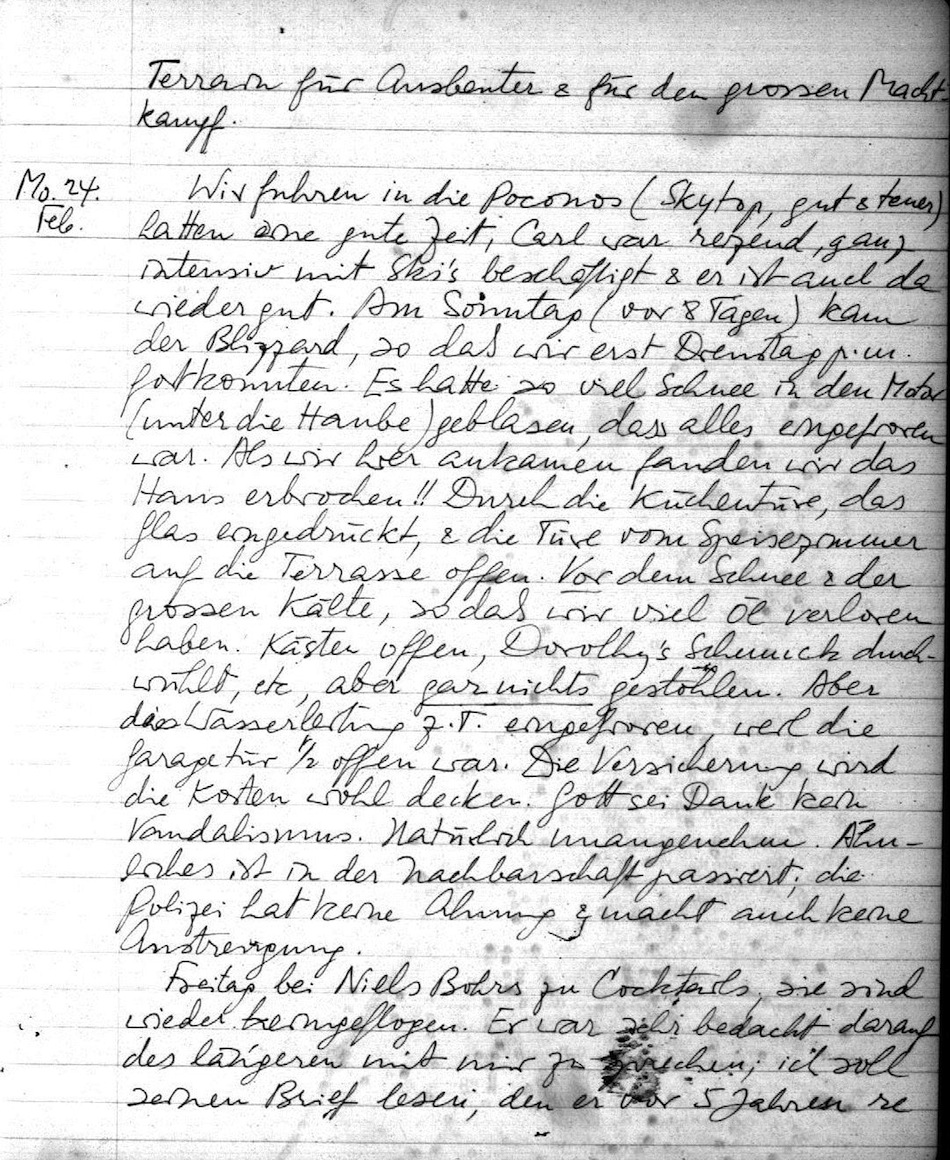 Terrain für Ausbeuter & für den grossen Macht
kampf.
Mo. 24.
Feb.
Wir fuhren in die Poconos (Skytop, gut & teuer)
hatten eine gute Zeit, Carl war reizend, ganz
intensiv mit Ski's beschäftigt & er ist auch da
wieder gut. Am Sonntag (vor 8 Tagen) kam
der Blizzard, so dass wir erst Dienstag p.m.
fortkonnten. Es hatte so viel Schnee in den Motor
(unter die Haube) geblasen, dass alles eingefroren
war. Als wir hier ankamen fanden wir das
Haus erbrochen!! Durch die Küchentüre, das
Glas eingedrückt, & die Türe vom Speisezimmer
auf die Terrasse offen. Vor dem Schnee & der
grossen Kälte, so dass wir viel Öl verloren
haben. Kästen offen, Dorothy's Schmuck durch-
wühlt, etc, aber gar nichts gestohlen. Aber
die Wasserleitung z.T. eingefroren, weil die
Garagetür 1/2 offen war. Die Versicherung wird
die Kosten wohl decken. Gott sei Dank kein
Vandalismus. Natürlich unangenehm. Ähn-
liches ist in der Nachbarschaft passiert; die
Polizei hat keine Ahnung & macht auch keine
Anstrengung.
Freitag bei Niels Bohrs zu Cocktails, sie sind
wieder heimgeflogen. Er war sehr bedacht darauf
des längeren mit mir zu sprechen; ich soll
seinen Brief lesen, den er vor 5 Jahren re